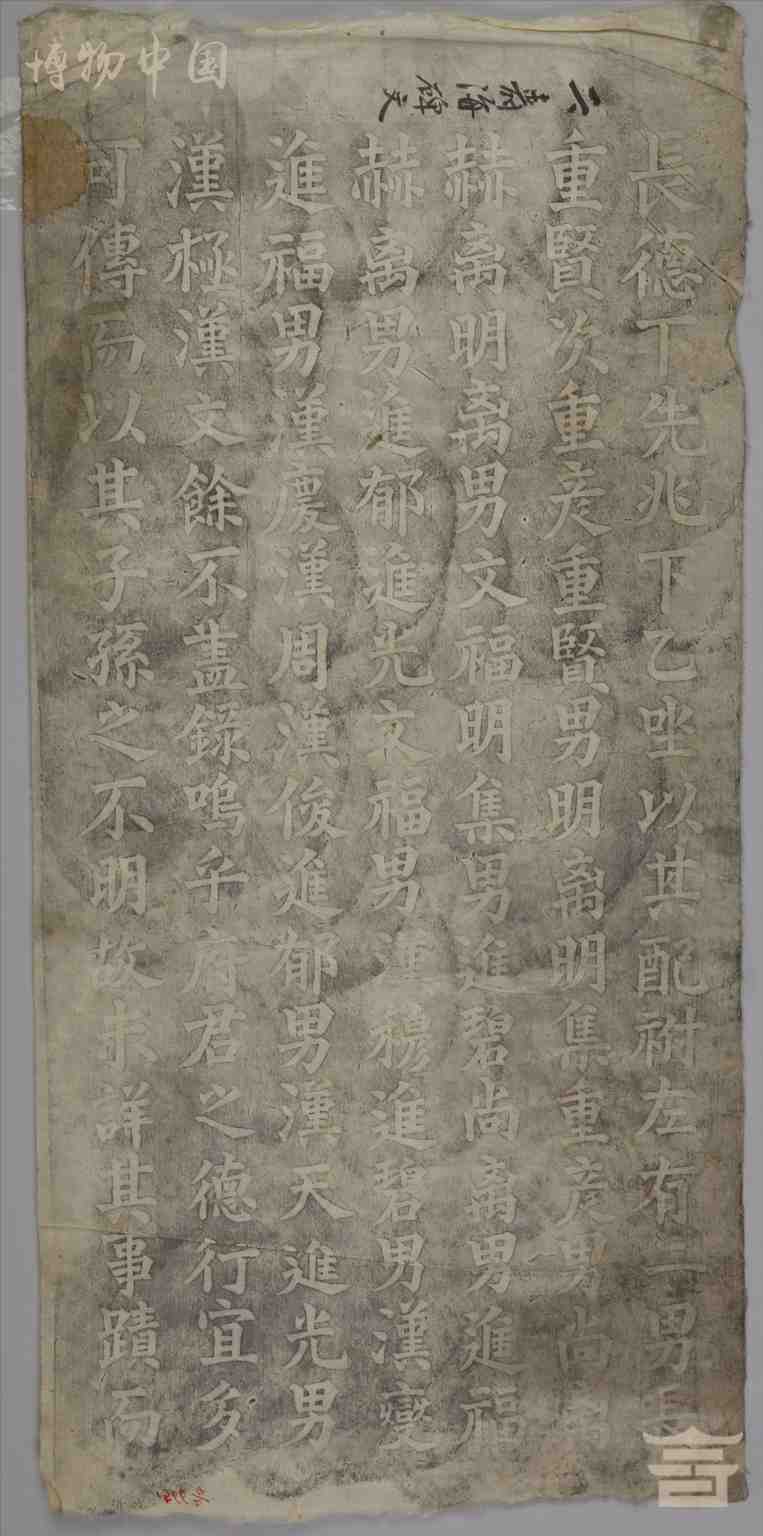 博物中国
長德下先兆下乙坐以其配祔左有二男長
重賢次重彦重賢男明离明集重彦男尚离
赫离明离男文福明集男進碧尚离男進福
赫离男進郁進光文福男漢穆進碧男漢燮
進福男漢慶漢周漢俊進郁男漢天進光男
漢極漢文餘不盡錄嗚乎府君之德行宜多
可傳而以其子孫之不明故未詳其事蹟而